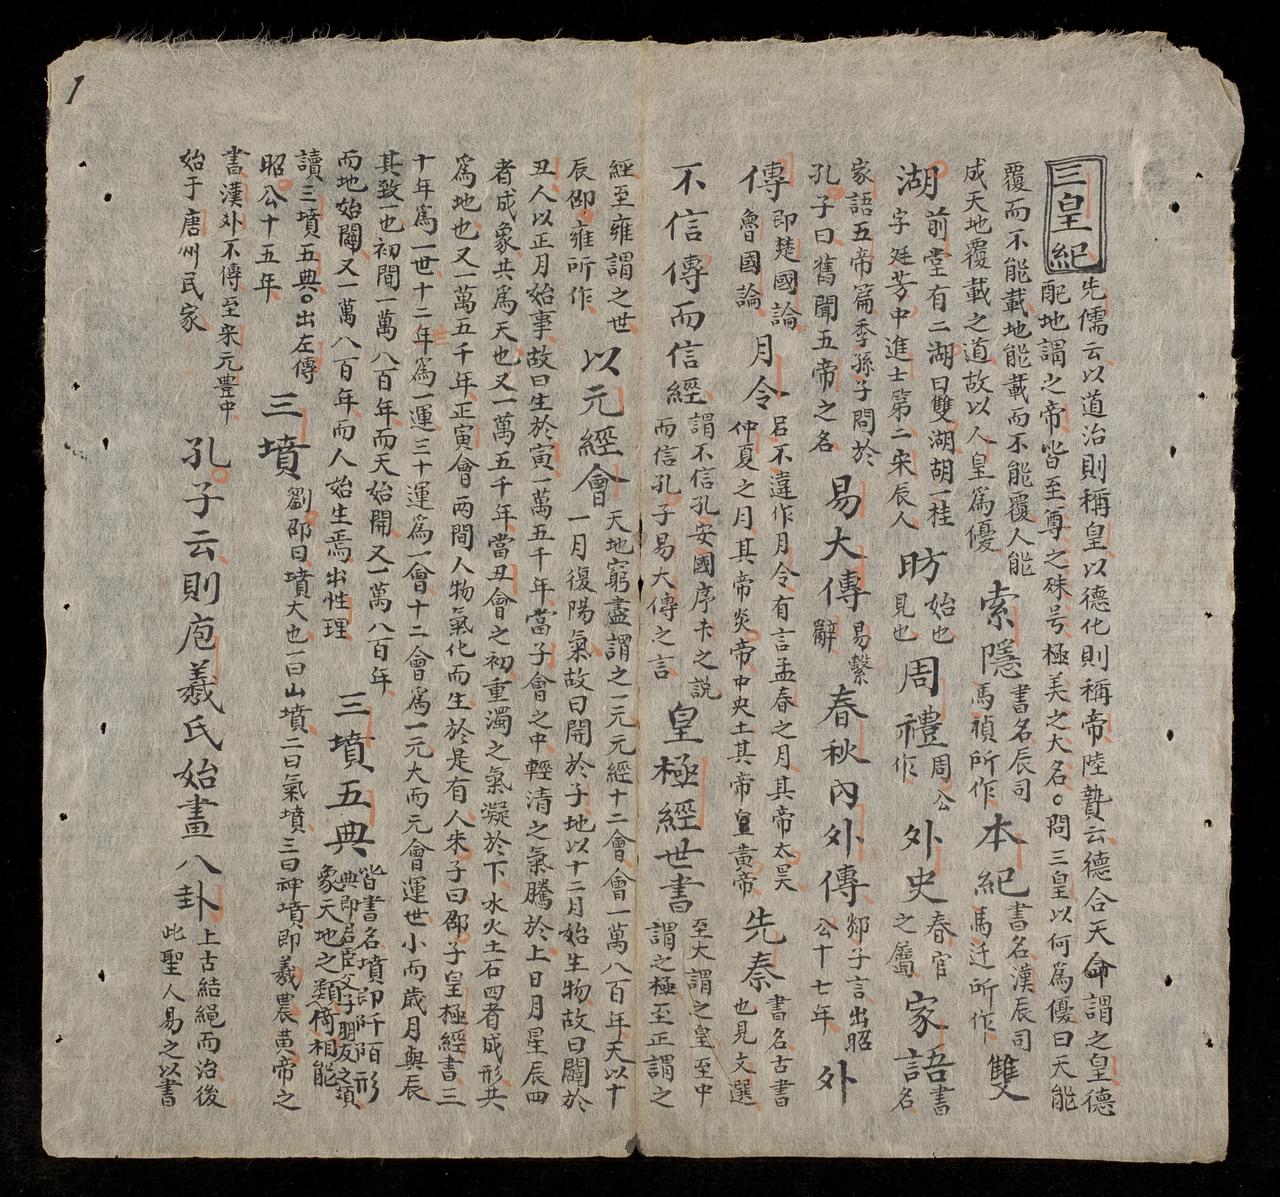 三皇紀
先儒云以道治則稱皇以德化則稱帝陸贄云德合天命謂之皇德
配地謂之帝皆至尊之殊号極美之大名。問三皇以何為優曰天能
覆而不能載地能載而不能覆人能
成天地覆載之道故以人皇為優
索隱
書名辰司
馬禎所作
本紀
書名漢辰司
馬迁所作
雙
湖
前堂有二湖曰雙湖胡一桂
字廷芳中進士第二宋辰人
昉
始也
見也
周禮
周公
作
外史
春官
之屬
家語
書
名
家語五帝篇季孫子問於
孔子曰舊聞五帝之名
易大傳
易繫
辭
春秋內外傳
郯子言出昭
公十七年
外
傳
即楚國論
魯國論
月令
呂不違作月令有言孟春之月其帝太昊
仲夏之月其帝炎帝中央土其帝皇黃帝
先秦
書名古書
也見文選
不信傳而信經
謂不信孔安國序未之説
而信孔子易大傳之言
皇極經世書
至大謂之皇至中
謂之極至正謂之
經至雍謂之世
辰邵雍所作
以元經會
天地窮盡謂之一元元經十二會會一萬八百年天以十
一月復陽氣故曰開於子地以十二月始生物故曰闢於
丑人以正月始事故曰生於寅一萬五千年當子會之中輕清之氣騰於上日月星辰四
者成象共為天也又一萬五千年當丑會之初重濁之氣凝於下水火土石四者成形共
為地也又一萬五千年正寅會兩間人物氣化而生於是有人朱子曰邵子皇極經書三
十年為一世十二年為一運三十運為一會十二會為一元大而元會運世小而歲月與辰
其致一也初間一萬八百年而天始開又一萬八百年
而地始闢又一萬八百年而人始生焉出性理
三墳五典
皆書名墳即阡陌形
典即君臣父子朋友之類
象天地之類倚相能
讀三墳五典。出左傳
昭公十五年
三墳
劉邵曰墳大也一曰山墳二曰氣墳三曰神墳即羲農黃帝之
書漢外不傳至宋元豊中
始于唐州民家
孔子云則庖羲氏始畫八卦
上古結繩而治後
此聖人易之以書
1